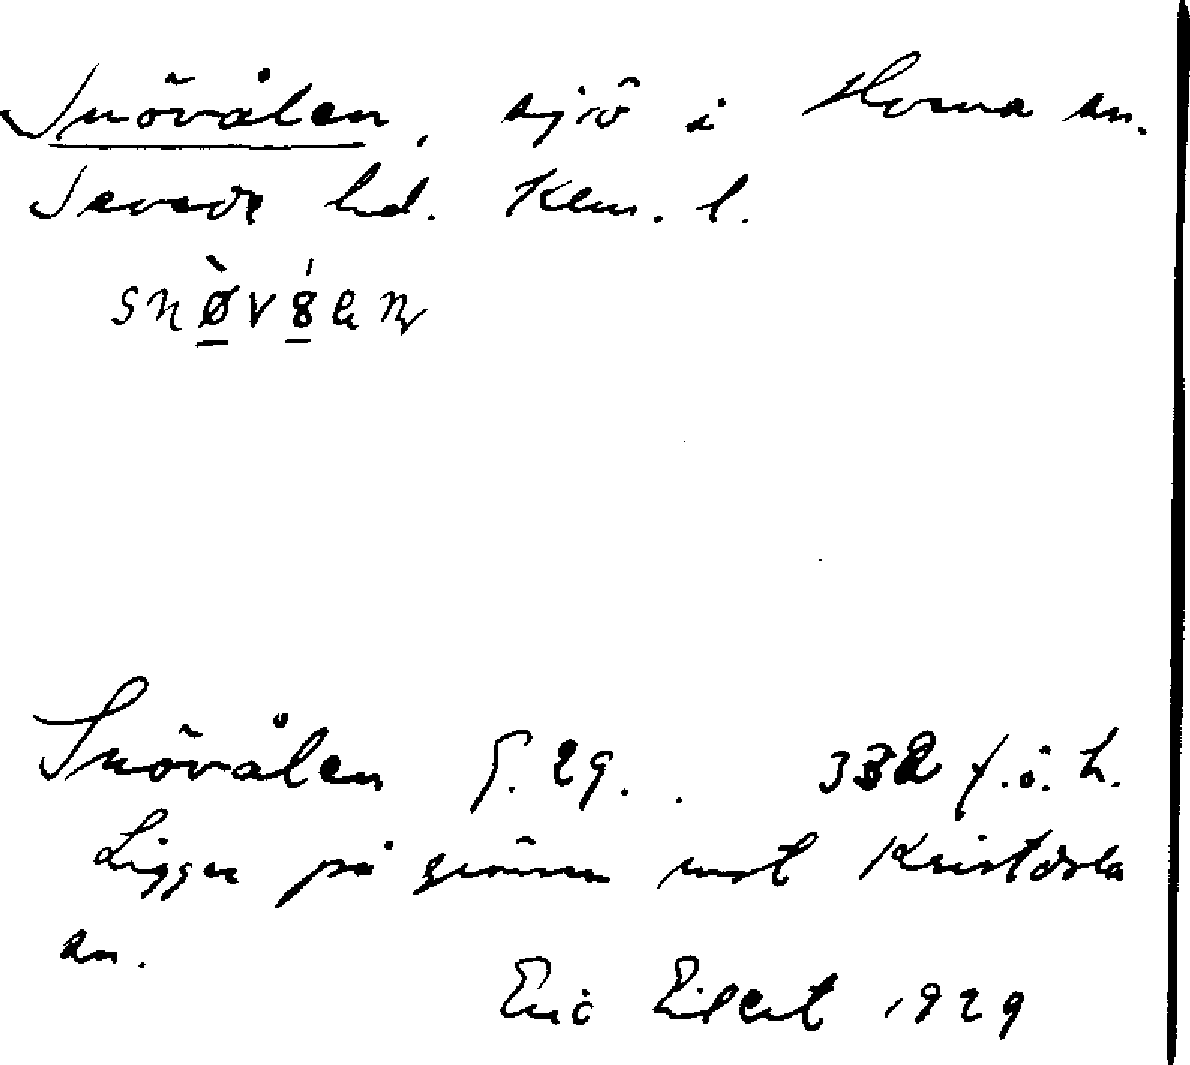 Snövålen, sjö i Horna sn.
Sevede hd. Klm. l.
Snövålen G. 29. 332 f.ö.h.
Ligger på gränsen mot Kristdala
sn.
Eric Eilert 1929